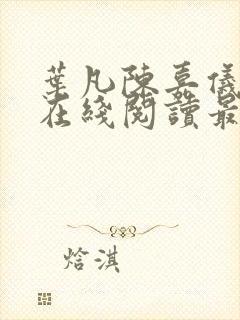 葉凡陳嘉儀
在綫閱讀最
焓淇